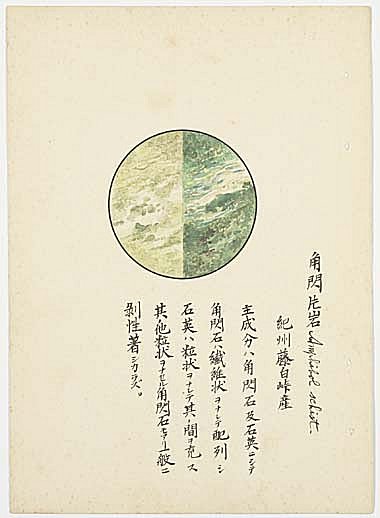 角閃片岩 Amphibol schist.
紀州藤白峠産
主成分ハ角閃石及石英ニシテ
角閃石ハ繊維状ヲナシテ配列シ
石英ハ粒状ヲナシテ其ノ間ヲ充ス
其他粒状ヲナセル角閃石モアリ一般ニ
剥性著シカラズ。